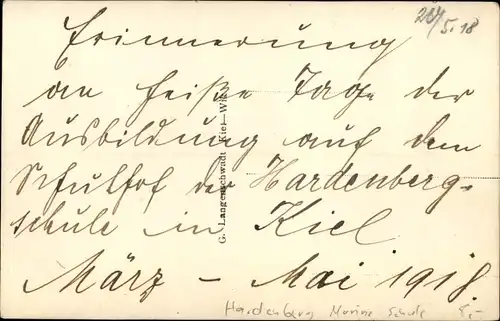 20/5.18
Erinnerung
an heiße Tage der
Ausbildung auf dem
Schulhof der Hardenberg-
schule in Kiel
März – Mai 1918.
G. Langenschwadt, Kiel-Wik
Hardenberg Marine Schule 8,-